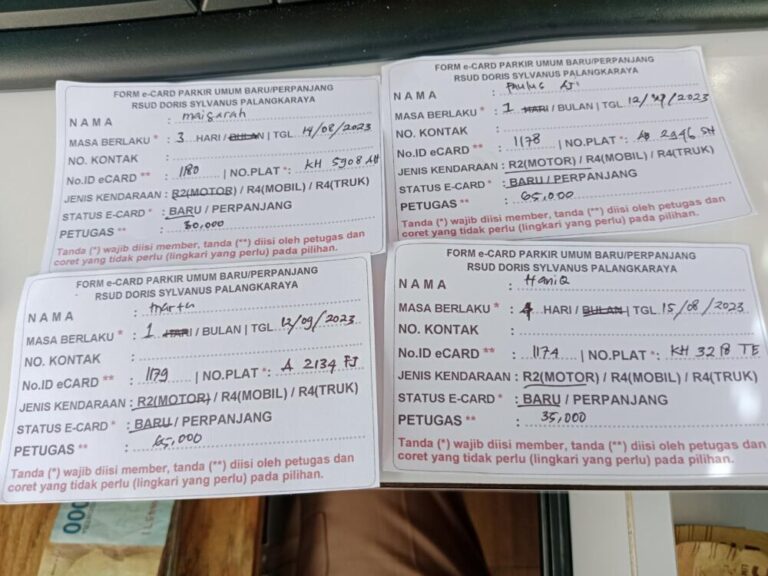 FORM e-CARD PARKIR UMUM BARU/PERPANJANG
RSUD DORIS SYLVANUS PALANGKARAYA
NAMA : maisarah
MASA BERLAKU * : 3 HARI / BULAN | TGL 14/08/2023
NO. KONTAK :
No.ID eCARD ** : 1180 | NO.PLAT *: KH 5908
JENIS KENDARAAN : R2(MOTOR) / R4(MOBIL) / R4(TRUK)
STATUS E-CARD * : BARU / PERPANJANG
PETUGAS ** : 30,000
Tanda (*) wajib diisi member, tanda (**) diisi oleh petugas dan
coret yang tidak perlu (lingkari yang perlu) pada pilihan.
FORM e-CARD PARKIR UMUM BARU/PERPANJANG
RSUD DORIS SYLVANUS PALANGKARAYA
NAMA : Paulus
MASA BERLAKU * : 1 HARI / BULAN | TGL 12/09/2023
NO. KONTAK :
No.ID eCARD ** : 1178 | NO.PLAT *: 2946 SH
JENIS KENDARAAN : R2(MOTOR) / R4(MOBIL) / R4(TRUK)
STATUS E-CARD * : BARU / PERPANJANG
PETUGAS ** : 65,000
Tanda (*) wajib diisi member, tanda (**) diisi oleh petugas dan
coret yang tidak perlu (lingkari yang perlu) pada pilihan.
FORM e-CARD PARKIR UMUM BARU/PERPANJANG
RSUD DORIS SYLVANUS PALANGKARAYA
NAMA :
MASA BERLAKU * : 1 HARI / BULAN | TGL 12/09/2023
NO. KONTAK :
No.ID eCARD ** : 1179 | NO.PLAT *: A 2134 FJ
JENIS KENDARAAN : R2(MOTOR) / R4(MOBIL) / R4(TRUK)
STATUS E-CARD * : BARU / PERPANJANG
PETUGAS ** : 65,000
Tanda (*) wajib diisi member, tanda (**) diisi oleh petugas dan
coret yang tidak perlu (lingkari yang perlu) pada pilihan.
FORM e-CARD PARKIR UMUM BARU/PERPANJANG
RSUD DORIS SYLVANUS PALANGKARAYA
NAMA : Haniq
MASA BERLAKU * : 4 HARI / BULAN | TGL 15/08/2023
NO. KONTAK :
No.ID eCARD ** : 1174 | NO.PLAT *: KH 3218 TE
JENIS KENDARAAN : R2(MOTOR) / R4(MOBIL) / R4(TRUK)
STATUS E-CARD * : BARU / PERPANJANG
PETUGAS ** : 35,000
Tanda (*) wajib diisi member, tanda (**) diisi oleh petugas dan
coret yang tidak perlu (lingkari yang perlu) pada pilihan.